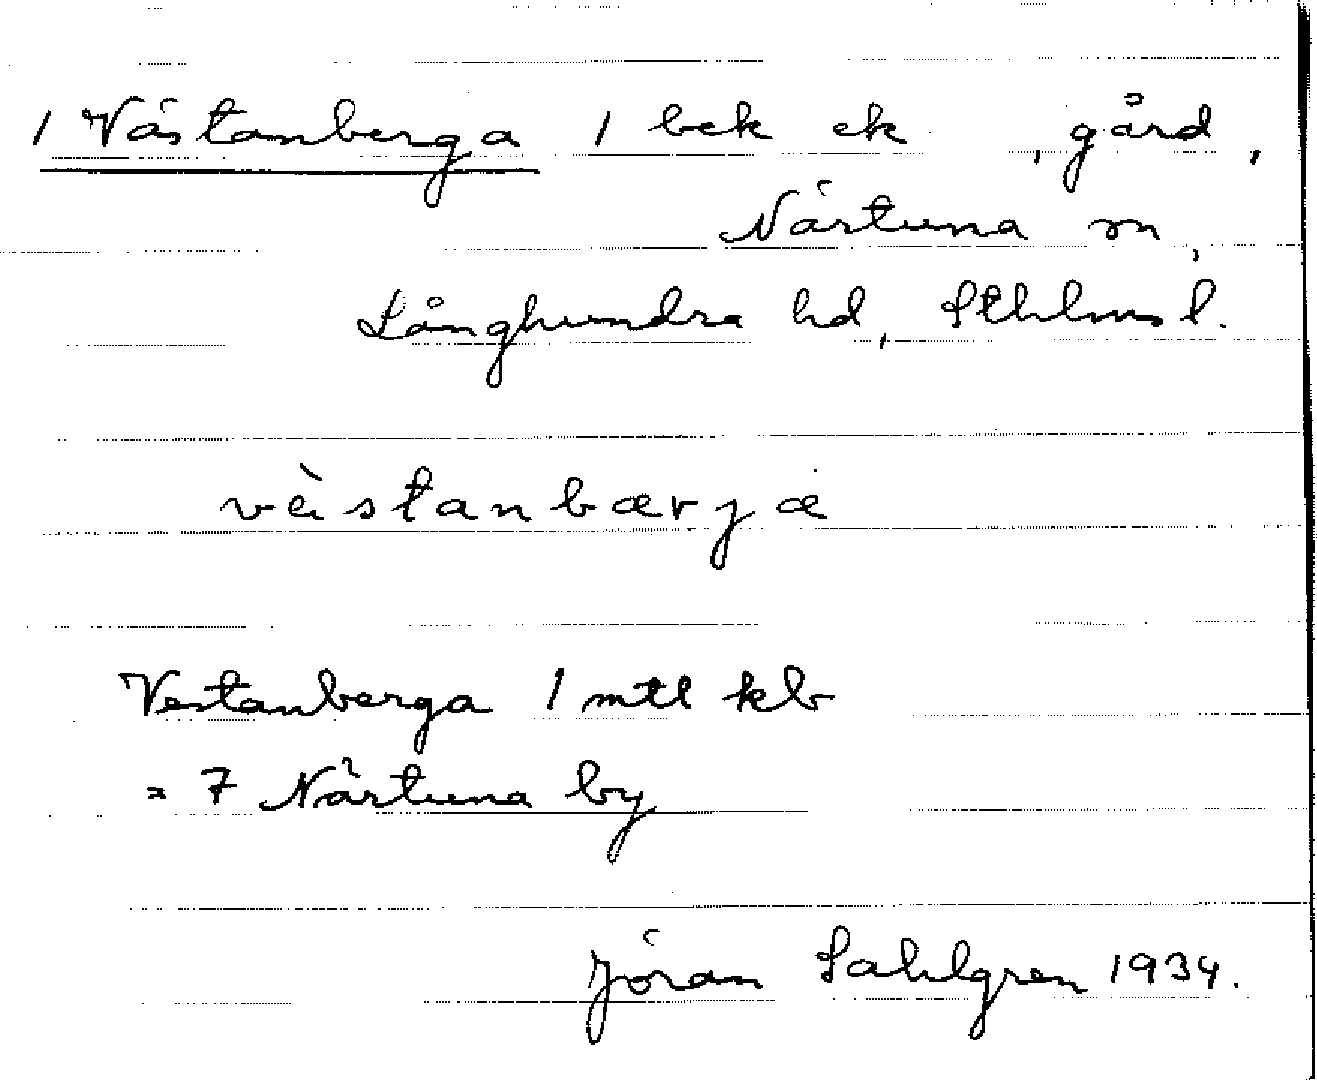 1 Västanberga 1 bek ek, gård,
Närtuna sn,
Långhundra hd, Sthlms l.
vèstanbærjæ
Vestanberga 1 mtl kb
= 7 Närtuna by
Jöran Sahlgren 1934.